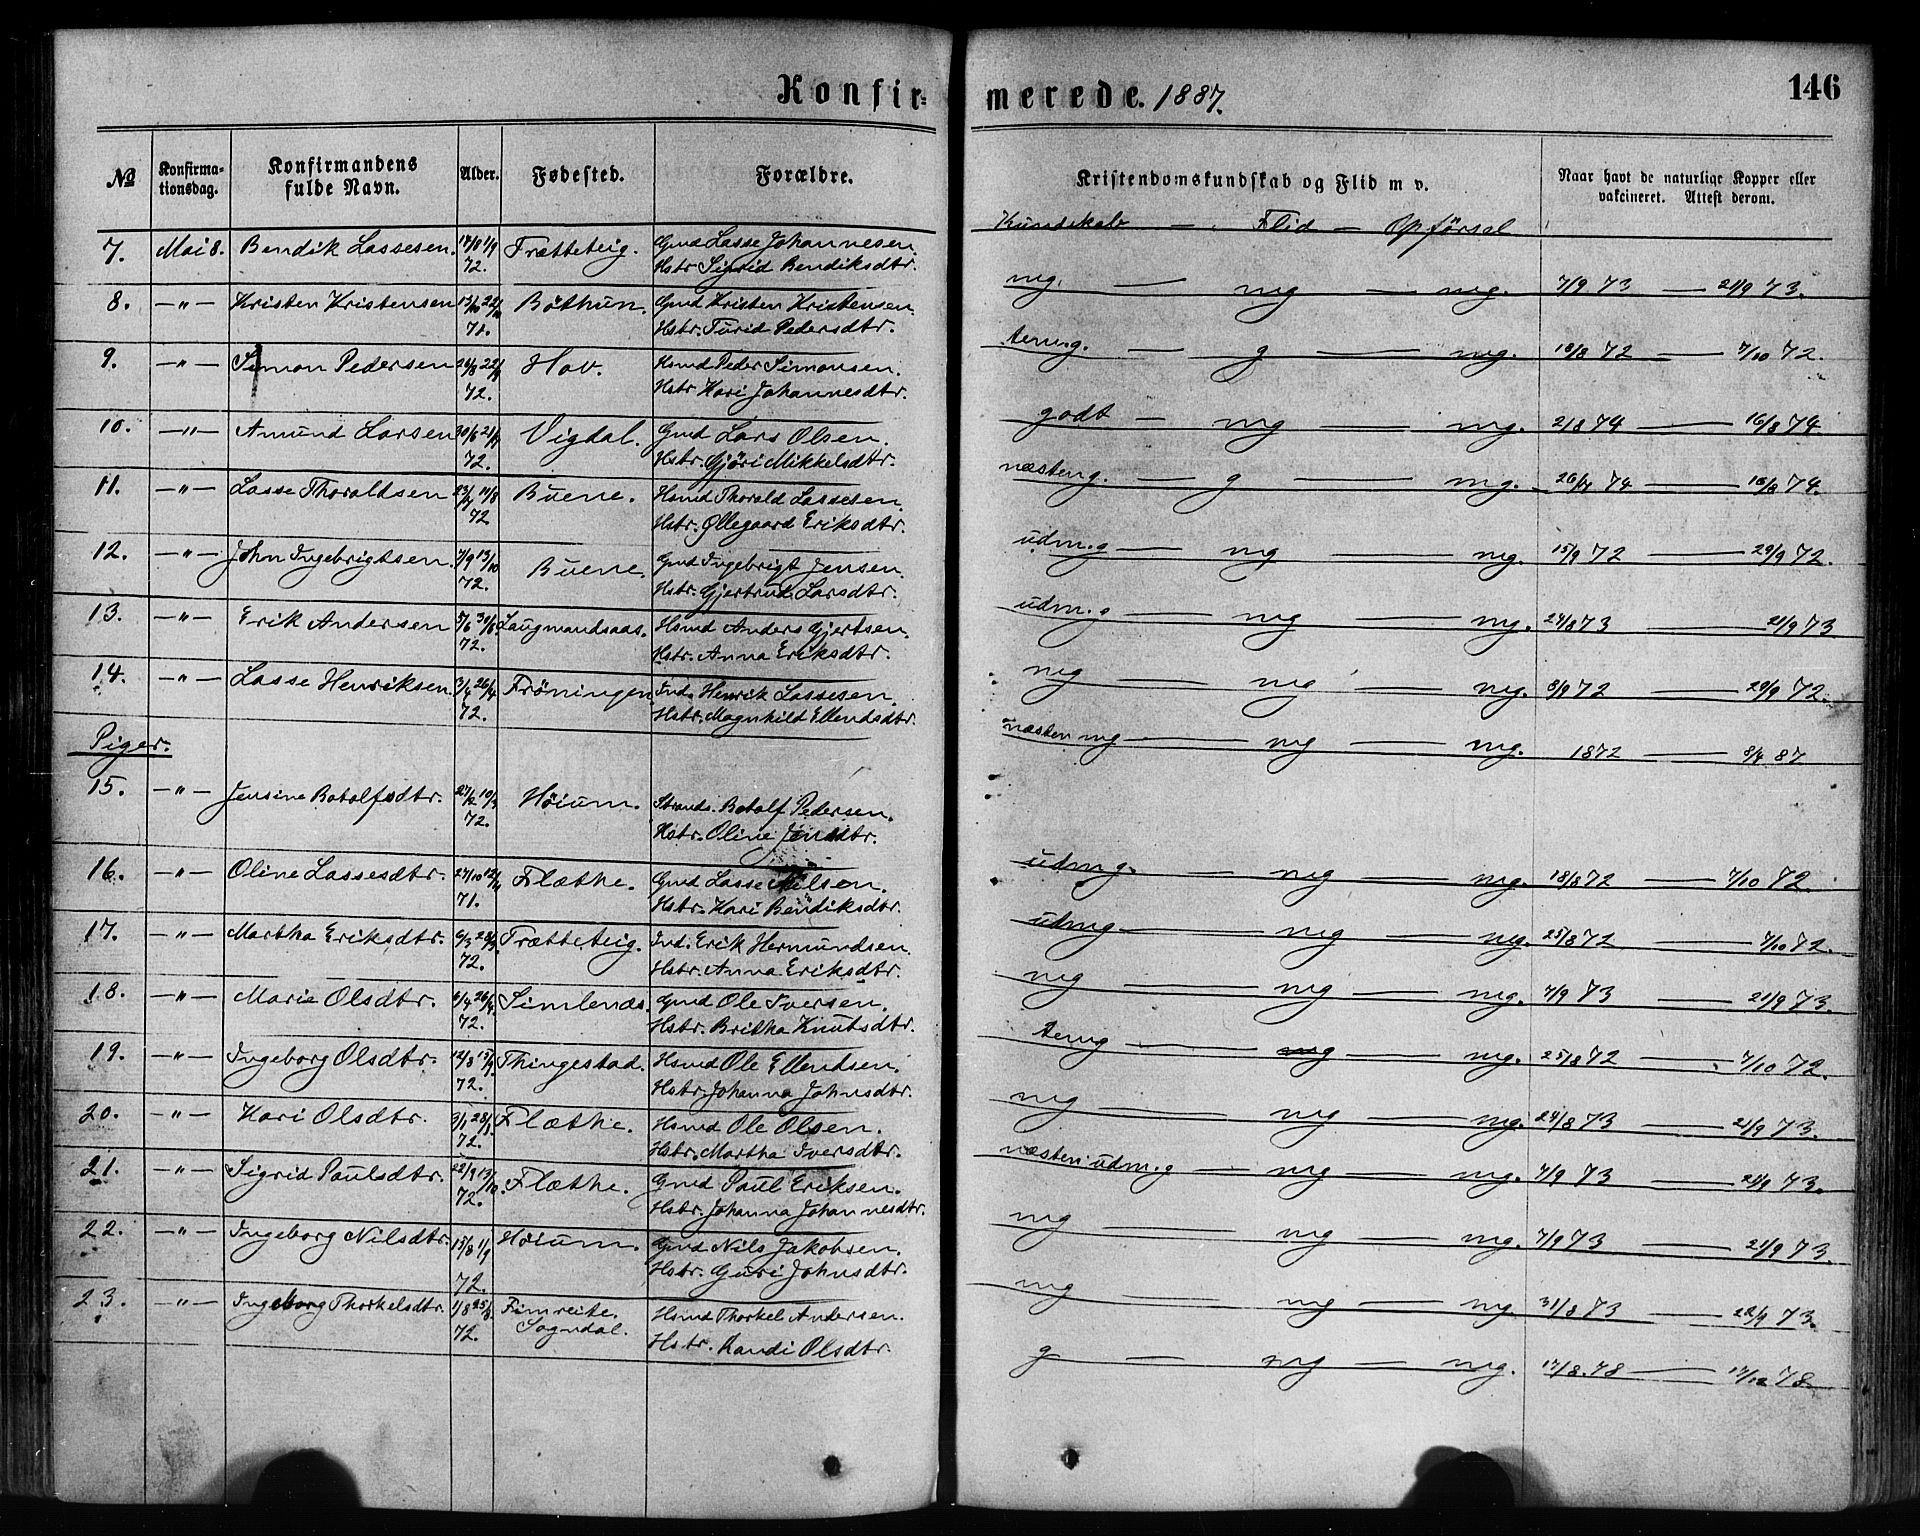 Konfirmerede. 1887. 146
№ Konfirmationsdag. Konfirmandens fulde Navn. Alder. Fødested. Forældre. Kristendomskundskab og Flid m v. Naar havt de naturlige Kopper eller vakcineret. Attest derom.
Kundskab — Flid — Opførsel
7. Mai 8. Bendik Lassesen. 17/8 1/9 72. Frætteteig. Gmd Lasse Johannesen.
Hstr Sigrid Bendiksdtr.
mg. — mg — mg. 7/9 73 — 21/9 73.
8. —"— Kristen Kristensen 72. Böthun. Gmd Kristen Kristensen.
Hstr. Turid Pedersdtr.
temg. — g — mg. 18/8 72 — 7/10 72.
9. —"— Simon Pedersen 72. Hov. Hsmd Peder Simonsen.
Hstr Kari Johannesdtr.
godt — mg — mg. 2/8 74 — 16/8 74
10. —"— Amund Larsen 30/6 21/7 72. Vigdal. Gmd Lars Olsen.
Hstr. Gjöri Mikkelsdtr.
næsten g. — g — mg. 26/7 74 — 16/8 74.
11. —"— Lasse Thoraldsen 23/7 11/8 72 Buene. Hsmd Thorald Lassesen
Hstr. Øllegaard Eriksdtr.
udm.g — mg — mg. 15/9 72 — 29/9 72.
12. —"— John Ingebrigtsen. 7/9 13/10 72. Buene. Gmd Ingebrigt Jensen.
Hstr. Gjertrud Larsdtr.
udm.g — mg — mg. 24/8 73 — 21/9 73
13. —"— Erik Andersen 5/6 30/6 72. Laugmandsaas. Hsmd Anders Gjertsen.
Hstr. Anna Eriksdtr.
mg — mg — mg. 8/9 72 — 29/9 72.
14. —"— Lasse Henriksen. 3/4 26/4 72. Fröningen. Ind. Henrik Lassesen
Hstr. Magnhild Ellendsdtr.
næsten mg — mg — mg. 1872 — 8/4 87
Piger.
15. —"— Jensine Botolfsdtr. 27/2 10/3 72. Höium. Strands. Botolf Pedersen.
Hstr. Oline Jensdtr.
udmg. — mg — mg. 18/8 72 — 7/10 72.
16. —"— Oline Lassesdtr. 27/10 12/11 71. Flæthe. Gmd Lasse Nilsen.
Hstr. Kari Bendiksdtr.
udmg — mg — mg. 25/8 72 — 7/10 72.
17. —"— Martha Eriksdtr. 72. Frætteteig. Ind. Erik Hermundsen
Hstr. Anna Eriksdtr.
mg — mg — mg. 7/9 73 — 21/9 73.
18. —"— Marie Olsdtr. 6/4 26/4 72. Simlenæs. Gmd Ole Iversen.
Hstr. Britha Knutsdtr.
temg — mg — mg. 25/8 72 — 7/10 72.
19. —"— Ingeborg Olsdtr. 12/8 15/9 72. Thingestad. Hsmd Ole Ellendsen.
Hstr. Johanna Johnsdtr.
mg — mg — mg. 24/8 73 — 21/9 73.
20. —"— Kari Olsdtr. 3/1 28/1 72. Flæthe. Hsmd Ole Olsen.
Hstr. Martha Iversdtr.
næsten udm.g — mg — mg. 7/9 73 — 21/9 73.
21. —"— Sigrid Paulsdtr. 22/9 13/10 72. Flæthe. Gmd Paul Eriksen.
Hstr. Johanna Johannesdtr.
mg — mg — mg. 7/9 73 — 21/9 73.
22. —"— Ingeborg Nilsdtr. 15/8 1/9 72. Höium. Gmd Nils Jakobsen.
Hstr. Guri Johnsdtr.
mg — mg — mg 31/8 73 — 22/9 73.
23. —"— Ingeborg Thorkelsdtr. 1/8 25/8 72. Fimreite. Sogndal. Hsmd Thorkel Andersen.
Hstr. Randi Olsdtr.
g — mg — mg. 17/8. 78 — 17/12 78.